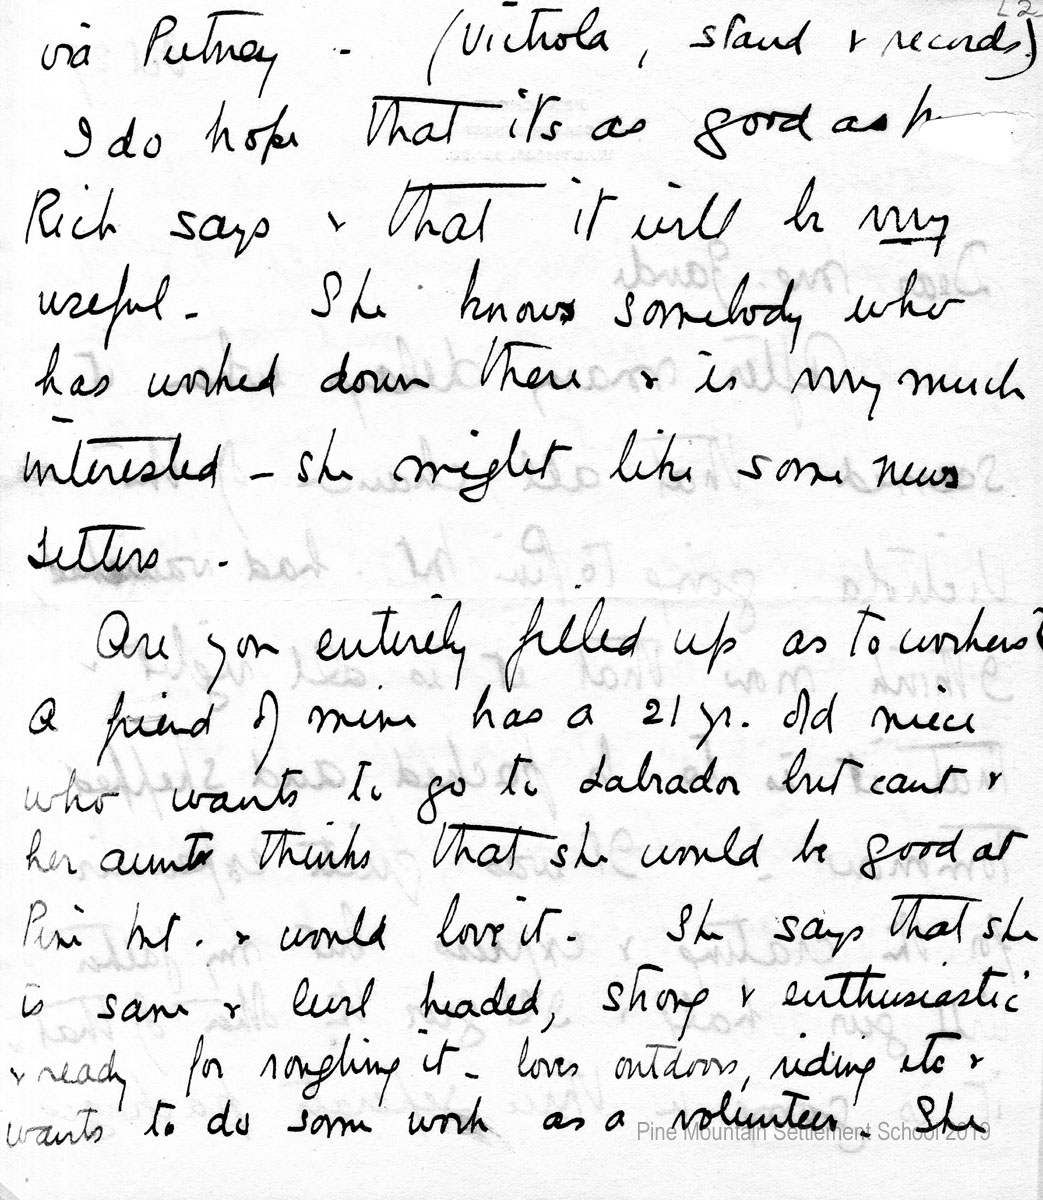 L2
via Putney - (Victrola, stand & records)
I do hope that it's as good as
Rich says & that it will be very
useful - She knows somebody who
has worked down there & is very much
interested - she might like some news
Letters -
Are you entirely filled up as to workers?
A friend of mine has a 21 yr. old niece
who wants to go to Labrador but cant &
her aunt thinks that she would be good at
Pine Mt. & would love it - She says that she
is sane & level headed, strong & enthusiastic
& ready for roughing it - loves outdoors, riding etc &
wants to do some work as a volunteer - She
Pine Mountain Settlement School 2019